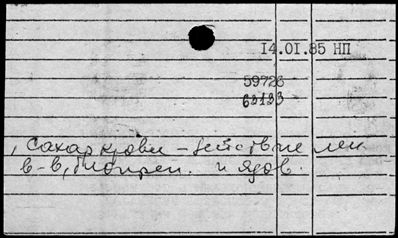 14.01.85 НП
59726
63133
, Сахар крови – действие лек
в-в, биопреп. и ядов.